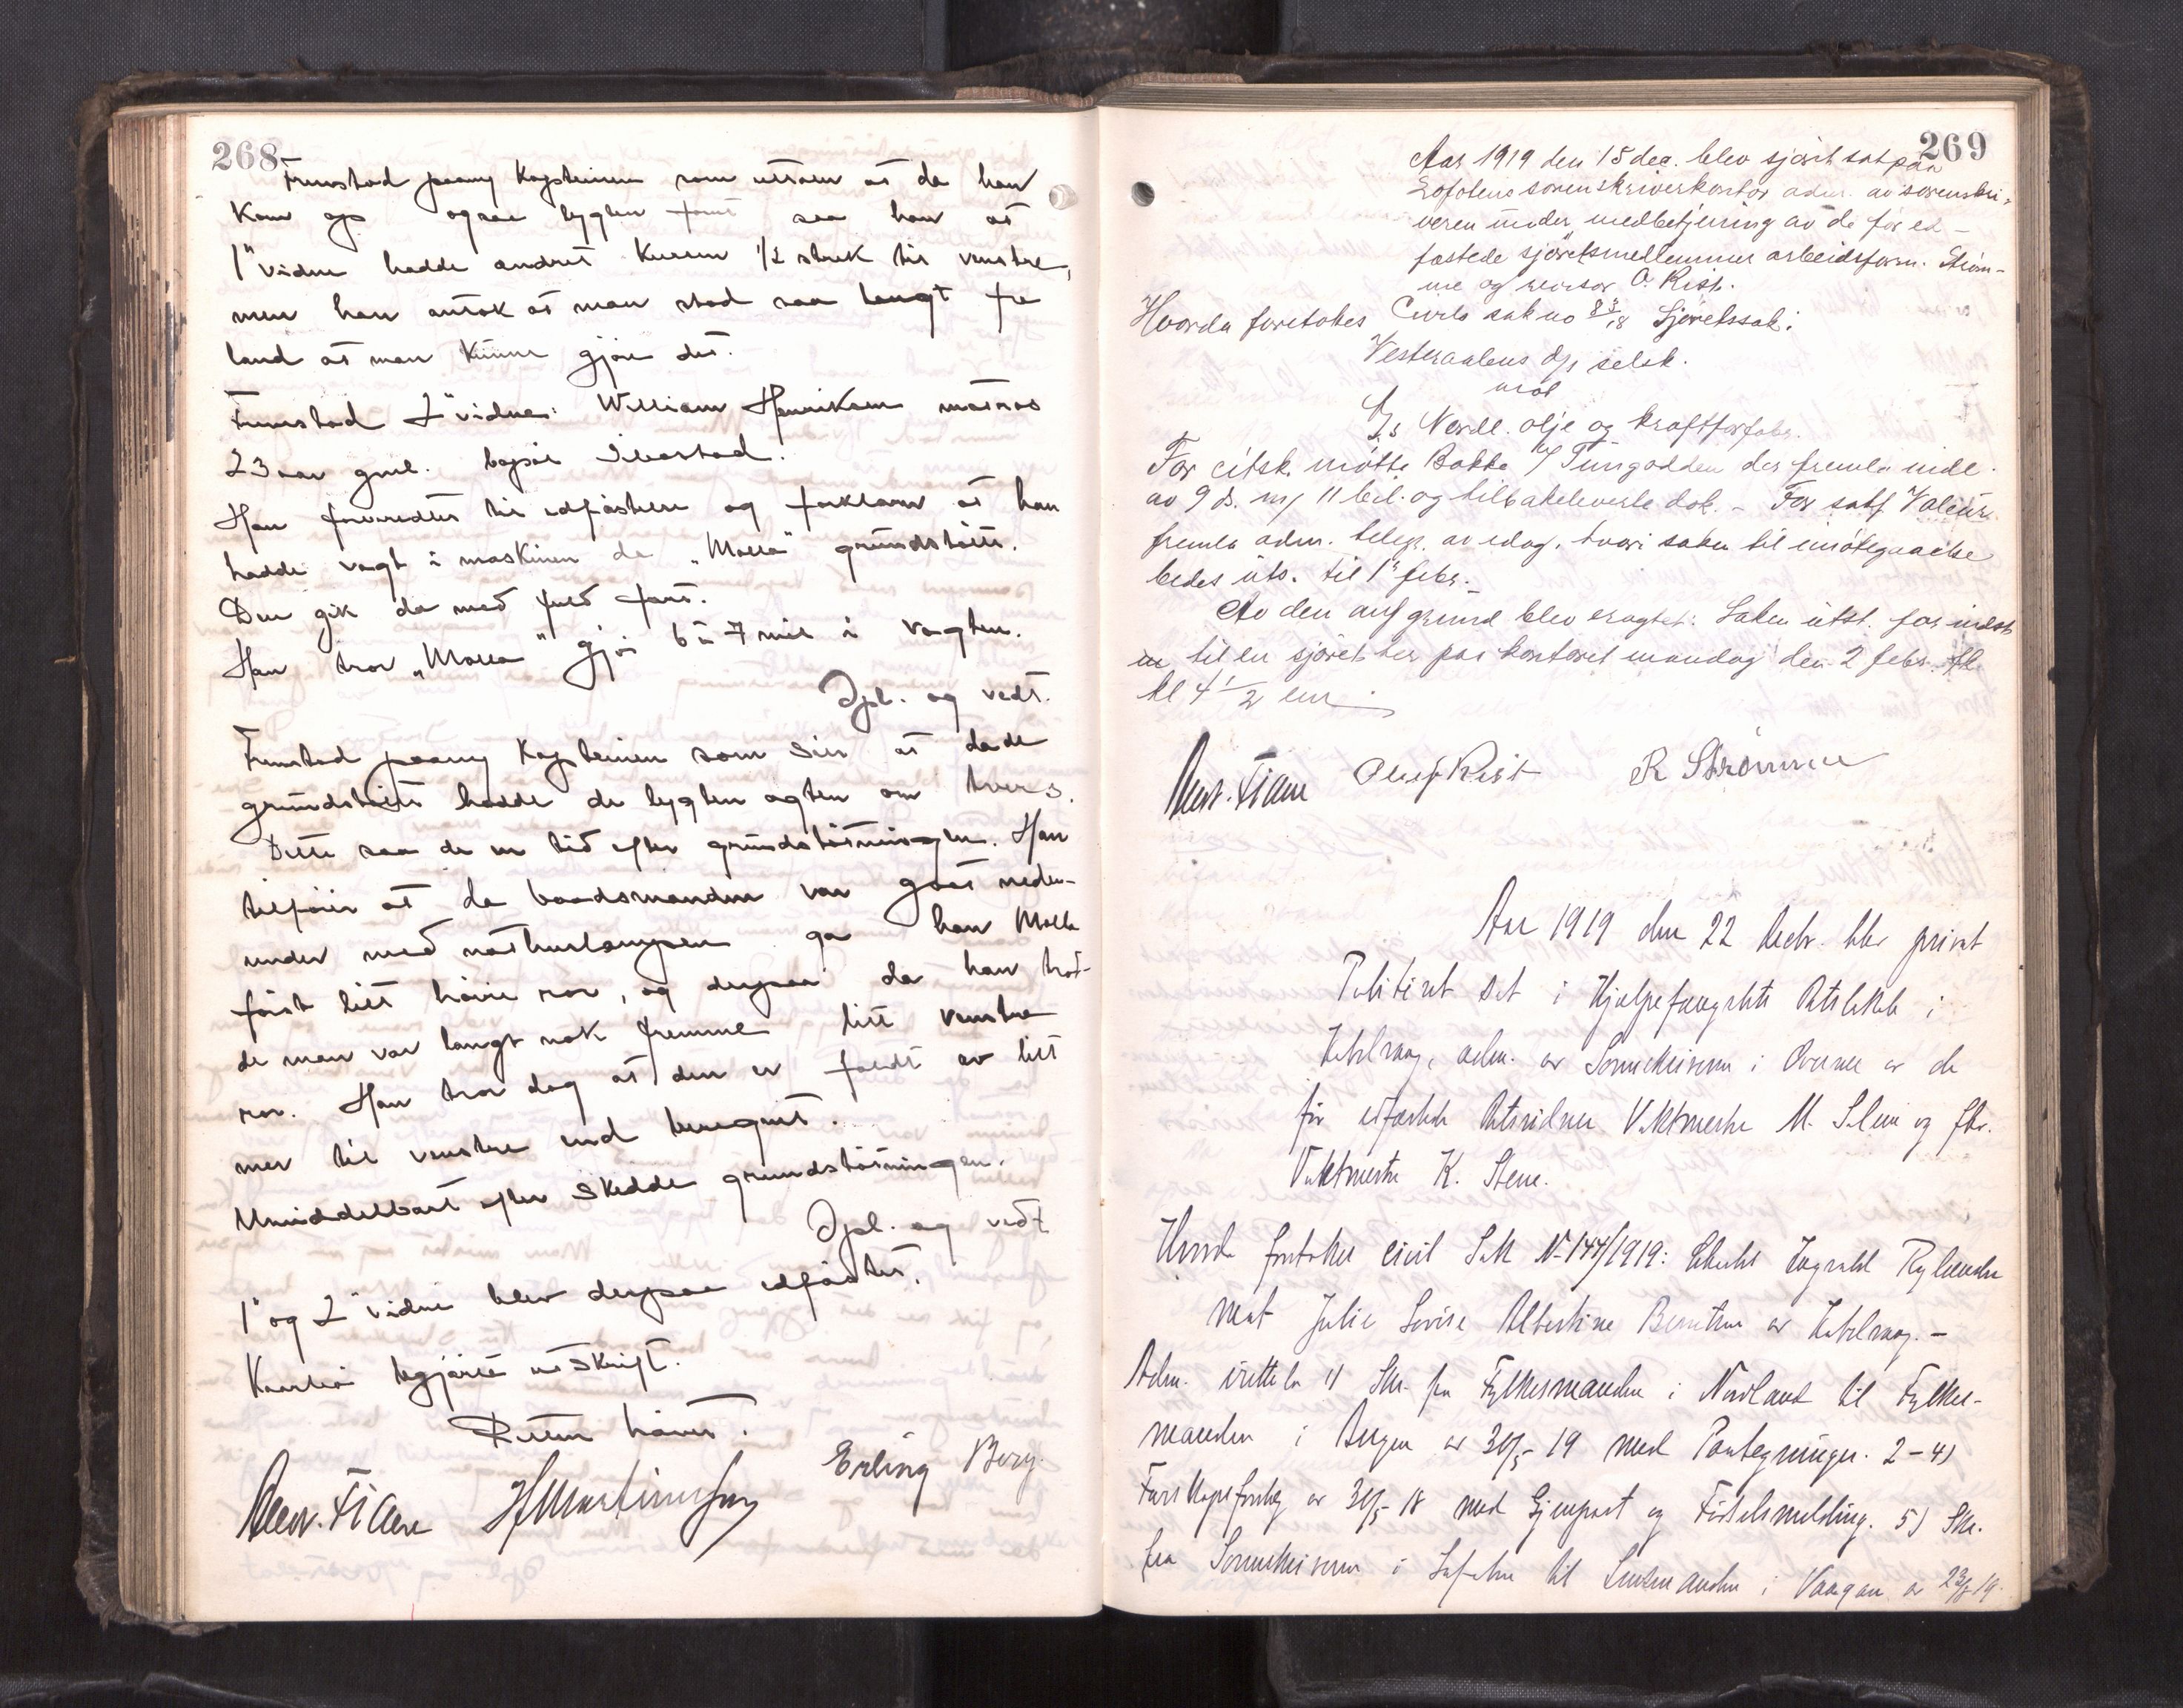 268
Fremstod paany Kapteinen som uttaler at da han
kom op ogsaa lygten saa han at
1ste vidne hadde andret kursen 1/2 strek til venstre,
men han antok at man stod saa langt fra
land at man kunne gjøre det.
Fremstod 2" vidne: William Henriksen matros
23 aar gml. bopæl Ibestad.
Han forberedtes til edfæstelse og forklarer at han
hadde vagt i maskinen da "Molla" grundstøtte.
Den gik da med fuld fart.
Han tror "Molla" gjør 6 à 7 mil i vagten.
Opl. og vedt.
Fremstod paany Kapteinen som sier at da de
grundstøtte hadde de lygten agten om tvers.
Dette saa de en tid efter grundstøtningen. Han
tilføier at da baadsmanden var gaat neden-
under med nathuslampen ga han Molla
først litt høire ror, og derpaa da han trod-
de man var langt nok fremme litt venstre
ror. Han tror dog at den er faldt av litt
mer til venstre end beregnet.
Umiddelbart efter skedde grundstøtningen.
Opl. og vedt
1" og 2" vidne blev derpaa edfæstet.
begjærte utskrift.
Retten hævet.
Erling Berg.
269
Aar 1919 den 15 dec. blev sjøret sat paa
Lofotens sorenskriverkontor adm. av sorenskri-
veren under medbetjening av de før ed-
fæstede sjøretsmedlemmer arbeidsform. Strøm-
me og revisor O. Rist.
Hvorda foretokes Civile sak no 83/18 Sjøretssak:
Vesteraalens d/s selsk.
mot
A/s Nordl. olje og kraftforfabr.
For citsk. møtte Bakke f/ Tungodden der fremla indl.
av 9 ds. m/ 11 bil. og tilbakeleverte dok. - For saks.
fremla adm. telegr. av idag, hvori saken til imøtegaaelse
bedes uts. til 1ste febr.
Av den anf grund blev eragtet: Saken utst. for indst
til en sjøret her paa kontoret mandag den 2 febr.
kl 4 1/2 em
Olaf Rist R Strømme
Aar 1919 den 22 Decbr. blev privat
Politiret sat i Hjælpefængslets Retslokale i
Kabelvaag, adm. av Sorenskriveren i Overvær av de
før edfæstede Retsvidner Vaktmester M. Solem og fhv.
Vaktmester K. Stene.
Hvorda foretokes civil Sak No 144/1919: Ingvald
mot Julie Lovise Albertine Berntsen av Kabelvaag. -
Adm. fremla 1) Skr. fra Fylkesmanden i Nordland til Fylkes-
manden i Bergen av 30/5 19 med Paategninger. 2-4)
Farskapsforelæg av 30/5 18 med Gjenpart og Fødselsmelding. 5) Skr.
fra Sorenskriveren i Lofoten til Lensmanden i Vaagan av 23/8 19.